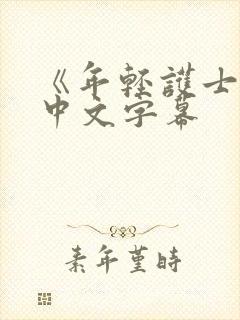 《年轻護士
中文字幕
素年堇時